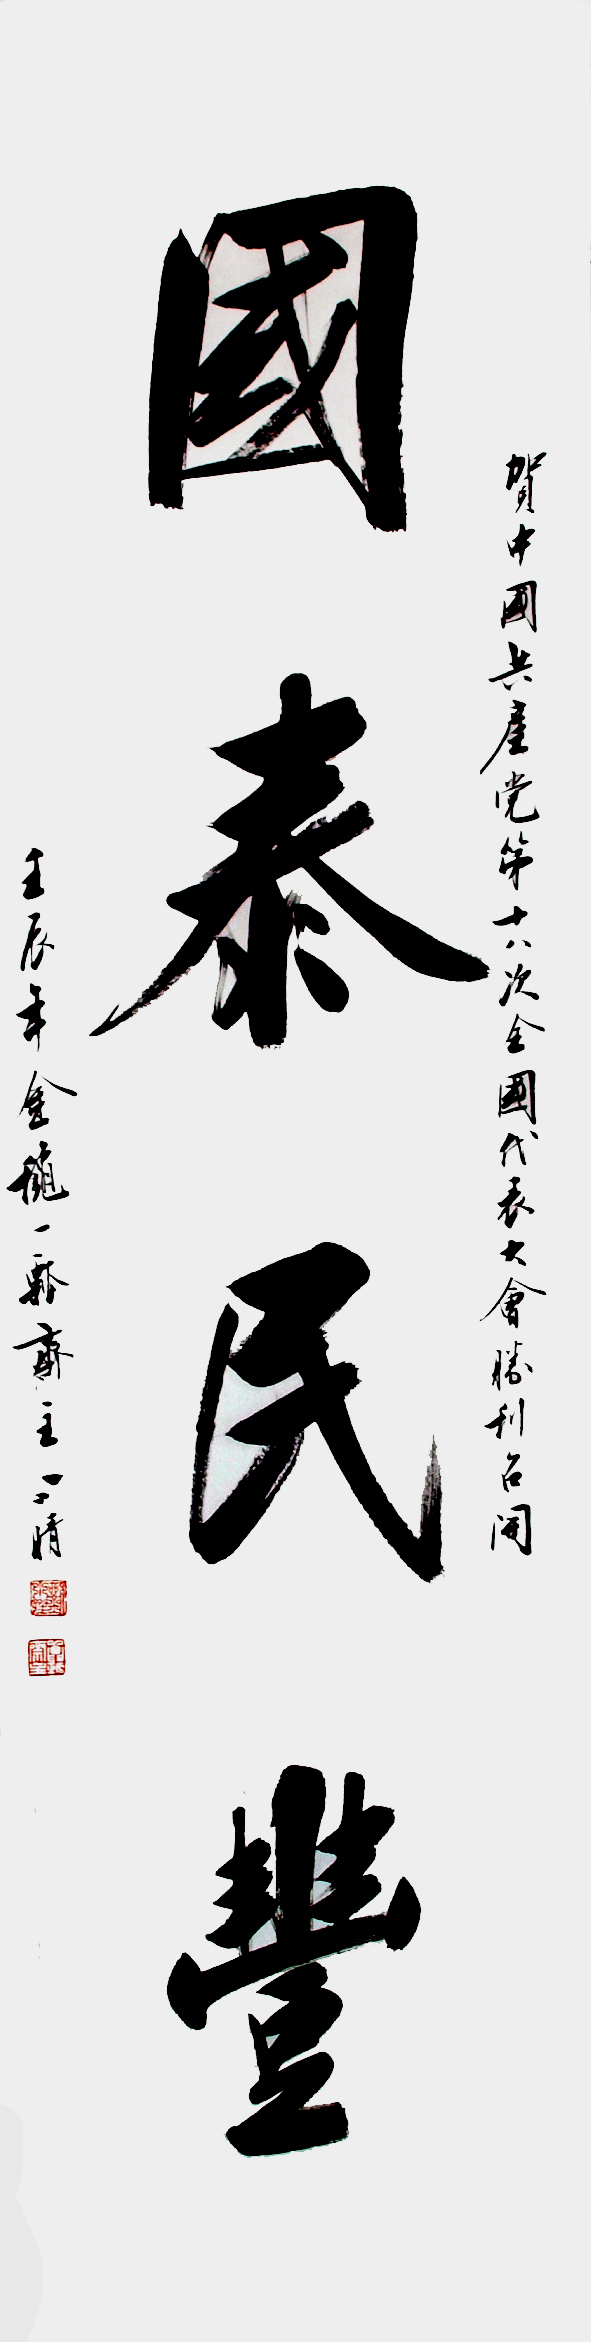 賀中國共產党第十八次全國代表大會勝利召開
國泰民豐
壬辰年金龍一 齋主 晴